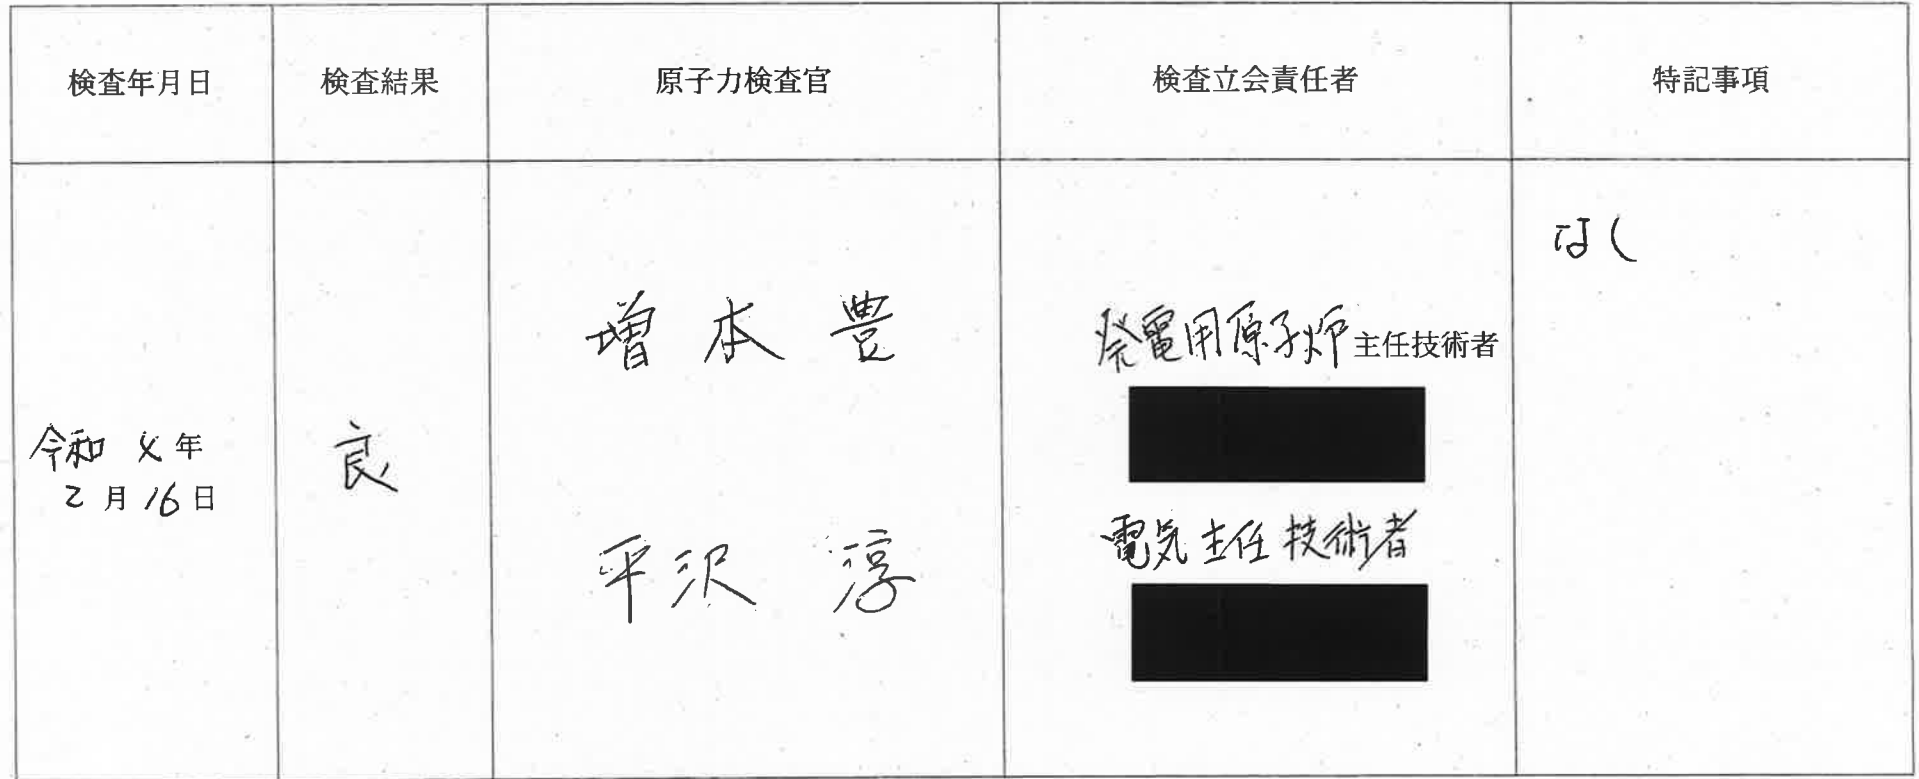 検査年月日
検査結果
原子力検査官
検査立会責任者
特記事項
令和 4 年
2 月 16 日
良
増 本 豊
平沢 淳
発電用原子炉主任技術者
電気主任技術者
なし